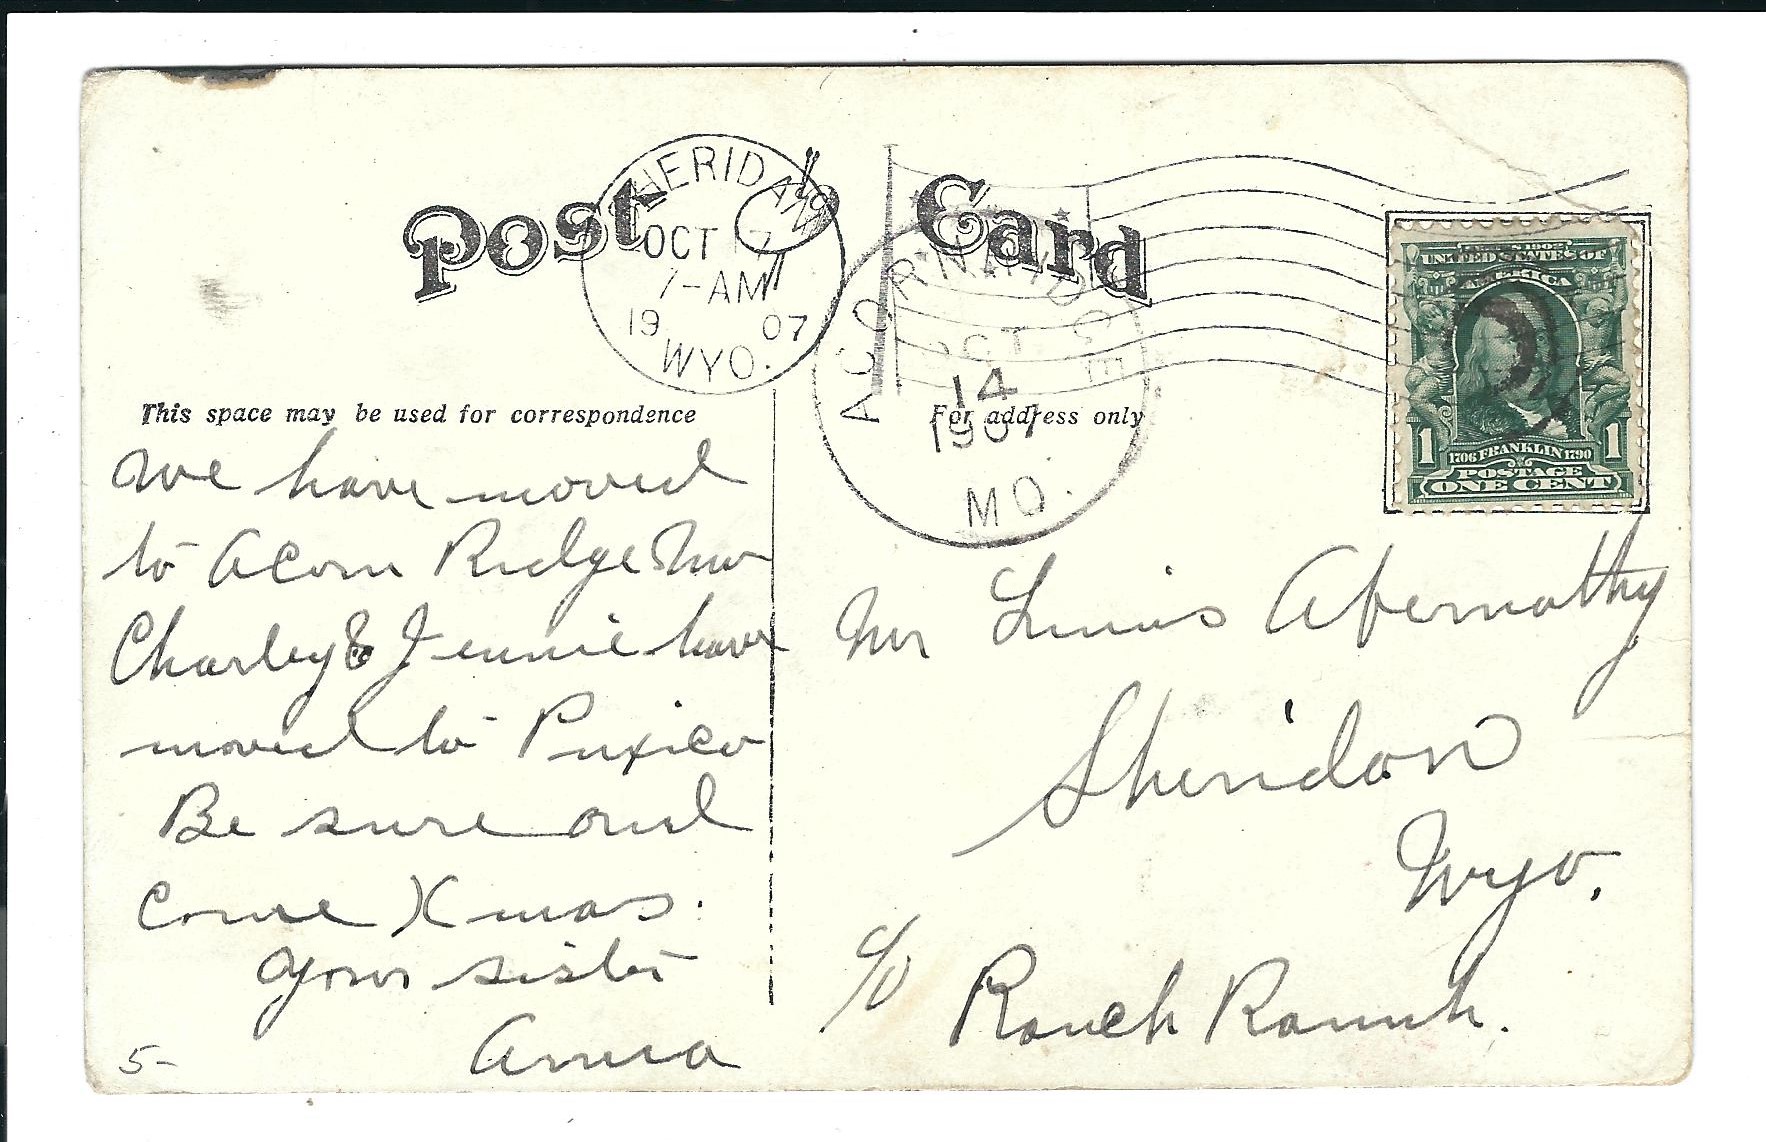 Post Card
SHERIDAN
OCT 17
7-AM
19 07
WYO.
ACORN RIDGE
OCT
14
1907
MO.
SERIES 1902
UNITED STATES OF
AMERICA
1 1
1706 FRANKLIN 1790
POSTAGE
ONE CENT
This space may be used for correspondence
For address only
We have moved
to Acorn Ridge Mo
Charley & Jennie have
moved to Puxico
Be sure and
come Xmas.
Your sister
Anna
5-
Mr Linus Abernathy
Sheridan
Wyo.
c/o Ranch